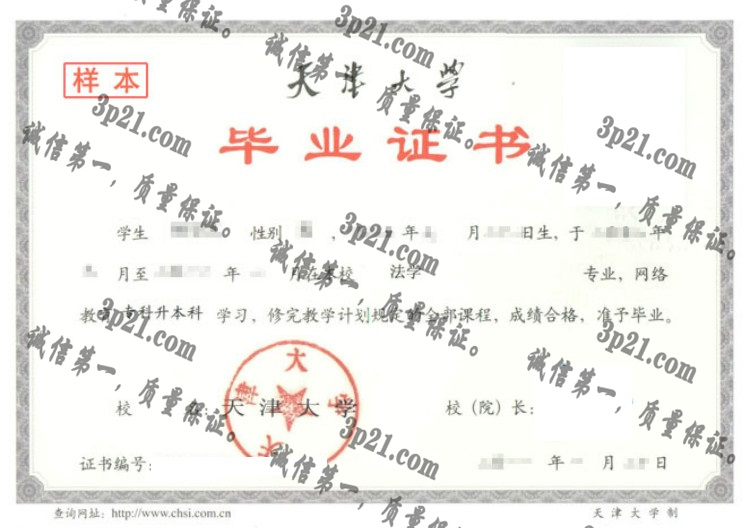 样本
天津大学
毕业证书
学生 性别 , 年 月 日生，于 年
月至 年 月在本校 法学 专业，网络
教育 专科升本科 学习，修完教学计划规定的全部课程，成绩合格，准予毕业。
校 名：天津大学 校（院）长：
天津大学
证书编号： 年 月 日
查询网址：http://www.chsi.com.cn 天津大学制
3p21.com
诚信第一，质量保证。
3p21.com
诚信第一，质量保证。
3p21.com
诚信第一，质量保证。
3p21.com
诚信第一，质量保证。
3p21.com
诚信第一，质量保证。
3p21.com
诚信第一，质量保证。
3p21.com
诚信第一，质量保证。
质量保证。